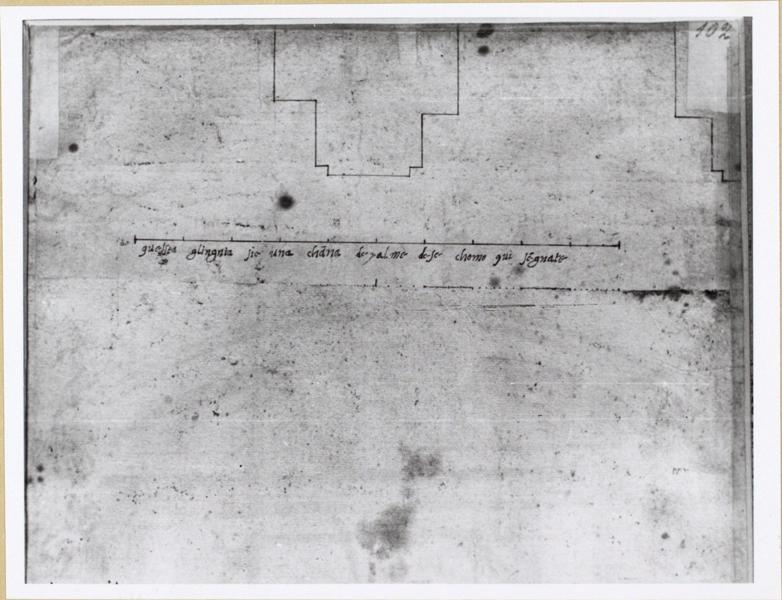 102
questa glingnia sie una channa de palme dese chome qui segnate